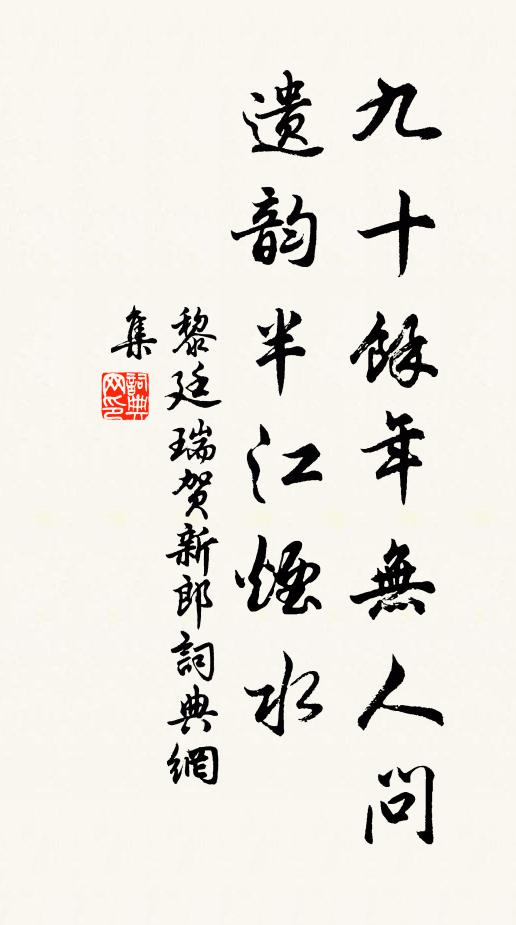 九十餘年無人問
遗韵半江煙水
黎廷瑞贺新郎詞典網
集
詞典
网印